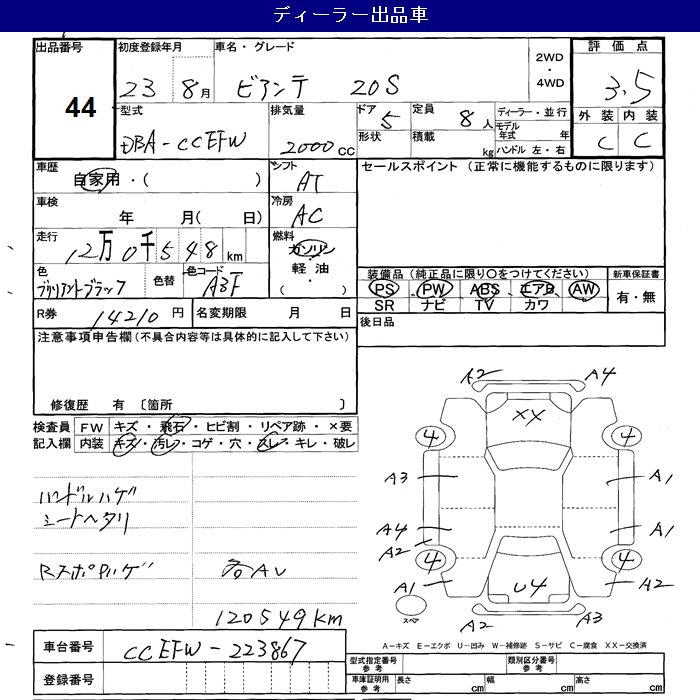 ディーラー出品車
出品番号 44
初度登録年月 23 8月
車名・グレード ビアンテ 20S
2WD・4WD
評価点 3.5
外装 C 内装 C
型式 DBA-CCEFW
排気量 2000cc
ドア 5
形状
定員 8人
積載 kg
ディーラー・並行
モデル年式 年
ハンドル 左・右
車歴 自家用・( )
シフト AT
セールスポイント (正常に機能するものに限ります)
車検 年 月( 日)
冷房 AC
走行 12万0千548km
燃料 ガソリン・軽油・( )
色 ブリリアントブラック
色替
色コード A3F
装備品(純正品に限り○をつけてください)
新車保証書
PS PW ABS エアB AW
SR ナビ TV カワ
有・無
R券 14210円
名変期限 月 日
後日品
注意事項申告欄(不具合内容等は具体的に記入して下さい)
修復歴 有 〔箇所 〕
検査員記入欄
FW キズ・飛石・ヒビ割・リペア跡・×要
内装 キズ・汚レ・コゲ・穴・スレ・キレ・破レ
ハンドルハゲ
シートヘタリ
Rスポイハゲ
AAV
120549km
A2 A4
XX
4 4
A3 A1
A4 A1
A2
4 4
A1 U4 A2
スペア
A2 A3
A-キズ E-エクボ U-凹み W-補修跡 S-サビ C-腐食 XX-交換済
車台番号 CCEFW-223867
登録番号
型式指定番号 参考
類別区分番号 参考
車庫証明用 参考 長さ cm 幅 cm 高さ cm